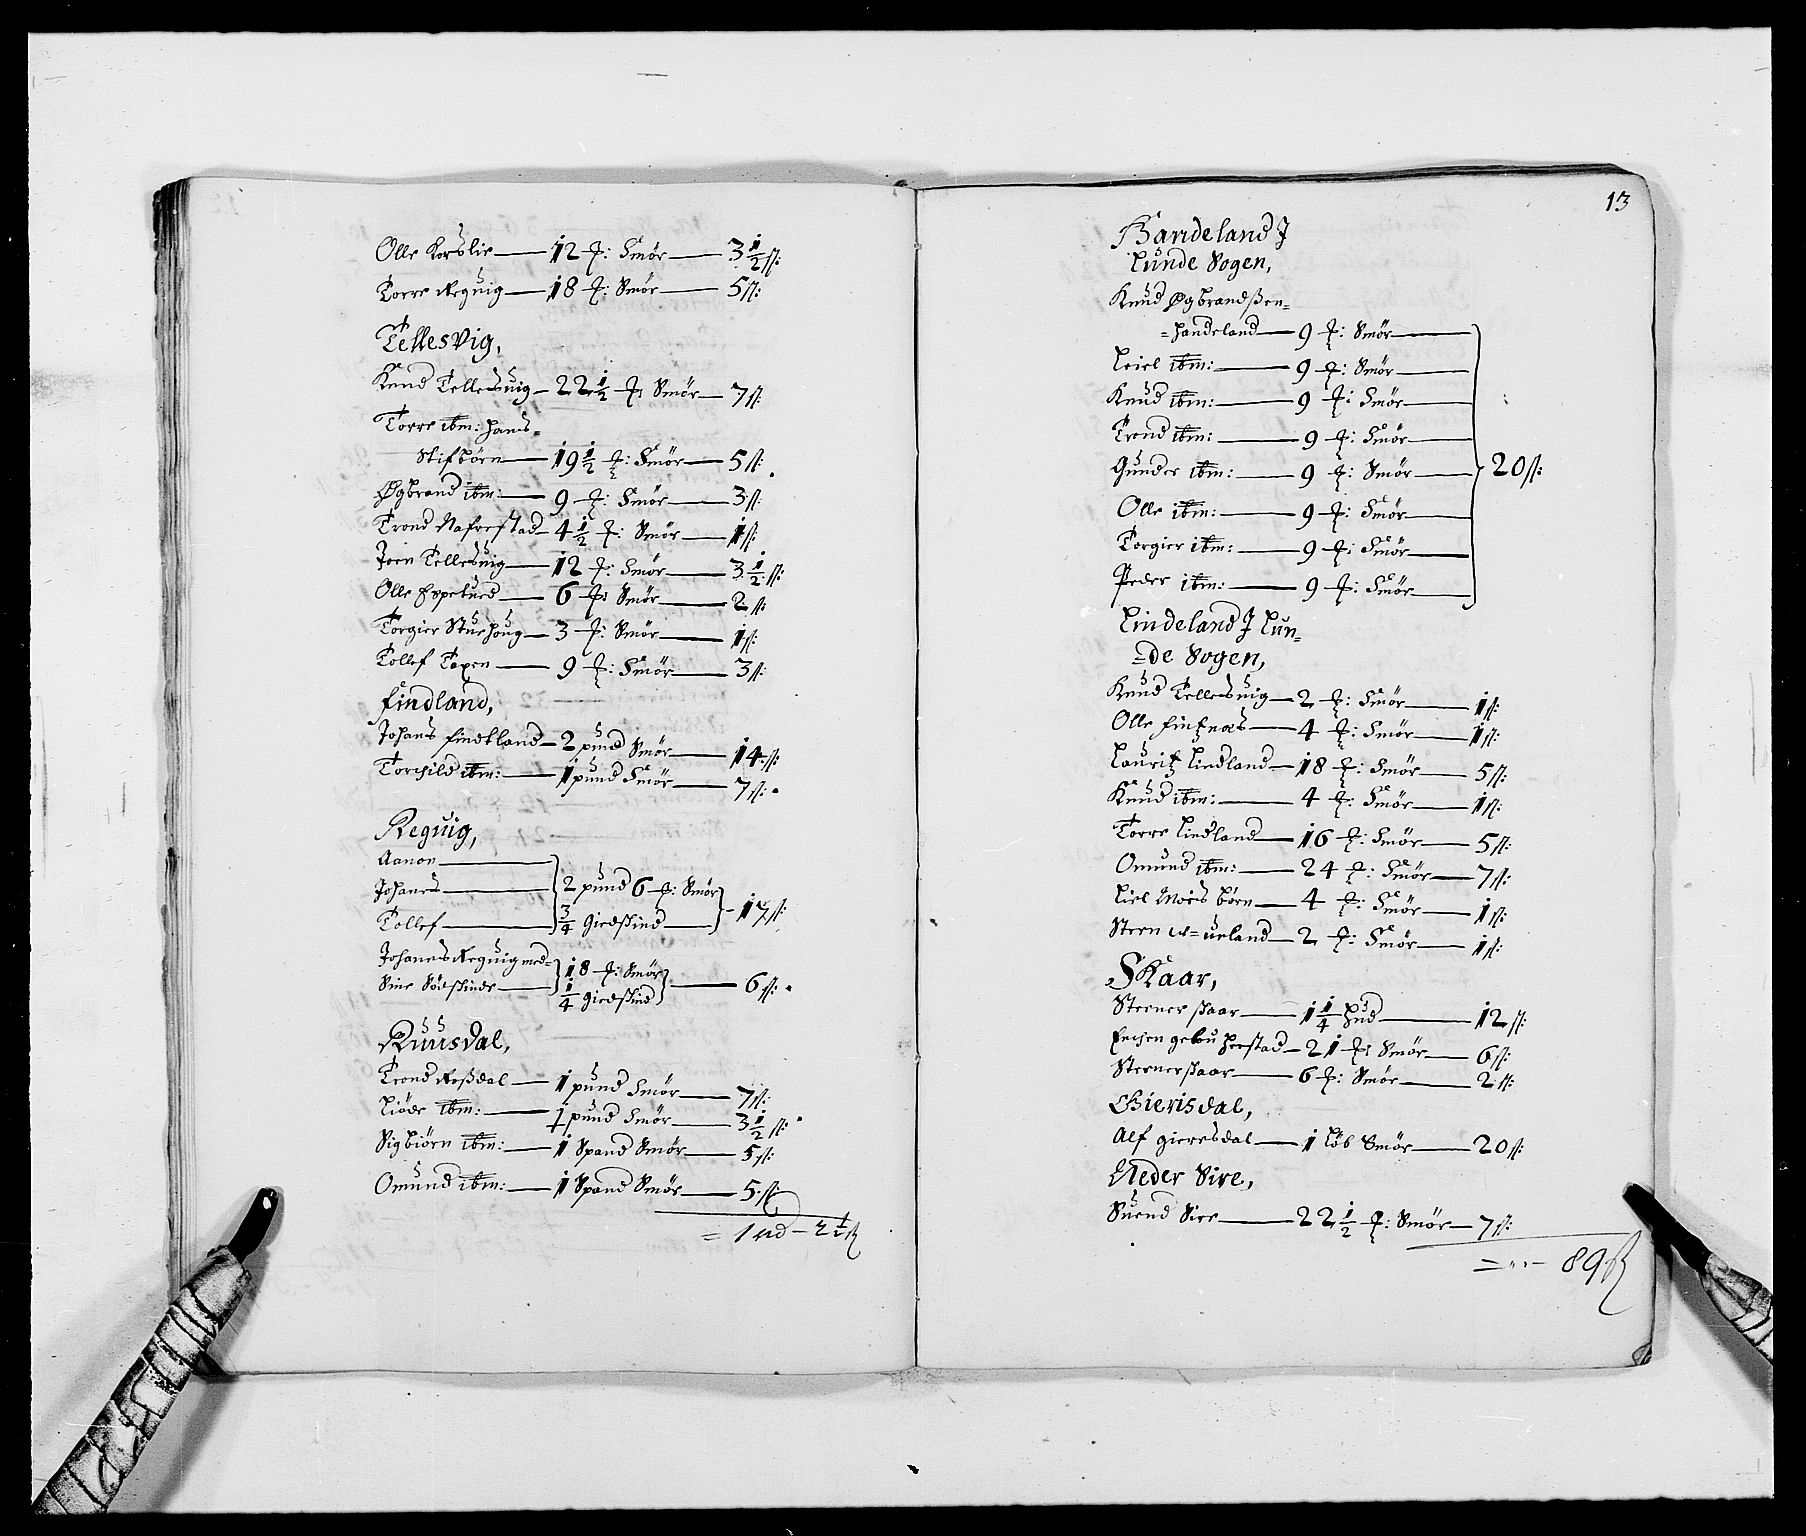 Olle Korslie — 12 ꝉ: Smör — 3 1/2 ß:
Torre Reguig — 18 ꝉ: Smör — 5 ß:
Tellesvig,
Knud Tellesuig — 22 1/2 ꝉ: Smör — 7 ß:
Torre ibm: hans=
Stifbörn — 19 1/2 ꝉ: Smör — 5 ß:
Øgbrand ibm: — 9 ꝉ: Smör — 3 ß:
Trond Nafrestad — 4 1/2 ꝉ: Smör — 1 ß:
Joen Tellesuig — 12 ꝉ: Smör — 3 1/2 ß:
Olle Espetued — 6 ꝉ: Smör — 2 ß:
Torgier Stuehoug — 3 ꝉ: Smör — 1 ß:
Tollef Toxen — 9 ꝉ: Smör — 3 ß:
Findland,
Johans Findtland — 2 pund Smör — 14 ß:
Torchild ibm: — 1 pund Smör — 7 ß:
Reguig,
Aanon —
Johanes — 2 pund 6 ꝉ: Smör
Tollef — 3/4 Giedskind — 17 ß:
Johanes Reguig med= 18 ꝉ: Smör
Sine Södskinde — 1/4 Giedskind — 6 ß:
Ruusdal,
Trond Roßdal — 1 pund Smör — 7 ß:
Liöde ibm: — ½ pund Smör — 3 1/2 ß:
Sigbiörn ibm: — 1 Spand Smör — 5 ß:
Omund ibm: — 1 Spand Smör — 5 ß
= 1 rd — 2 ½ ß
13
Handeland J
Lunde Sogen,
Knud Øgbrandßen=
=handeland — 9 ꝉ: Smör —
Leiel ibm: — 9 ꝉ: Smör —
Knud ibm: — 9 ꝉ: Smör —
Trond ibm: — 9 ꝉ: Smör —
Gunder ibm: — 9 ꝉ: Smör — 20 ß:
Olle ibm: — 9 ꝉ: Smör —
Torgier ibm: — 9 ꝉ: Smör —
Peder ibm: — 9 ꝉ: Smör —
Lindeland J Lun=
=de Sogen,
Knud Tellesuig — 2 ꝉ: Smör — 1 ß:
Olle Fintznæs — 4 ꝉ: Smör — 1 ß:
Lauritz Lindland — 18 ꝉ: Smör — 5 ß:
Knud ibm: — 4 ꝉ: Smör — 1 ß:
Torre Lindland — 16 ꝉ: Smör — 5 ß:
Omund ibm: — 24 ꝉ: Smör — 7 ß:
Liel Mois börn — 4 ꝉ: Smör — 1 ß:
Steen ueland — 2 ꝉ: Smör — 1 ß:
Skaar,
Stener skaar — 1 1/4 hud — 12 ß:
herstad — 21 ꝉ: Smör — 6 ß:
Stener skaar — 6 ꝉ: Smör — 2 ß:
Gierisdal,
Alf gieresdal — 1 löb Smör — 20 ß:
Neder Sire,
Suend Sire — 22 1/2 ꝉ: Smör — 7 ß:
= — 89 ß